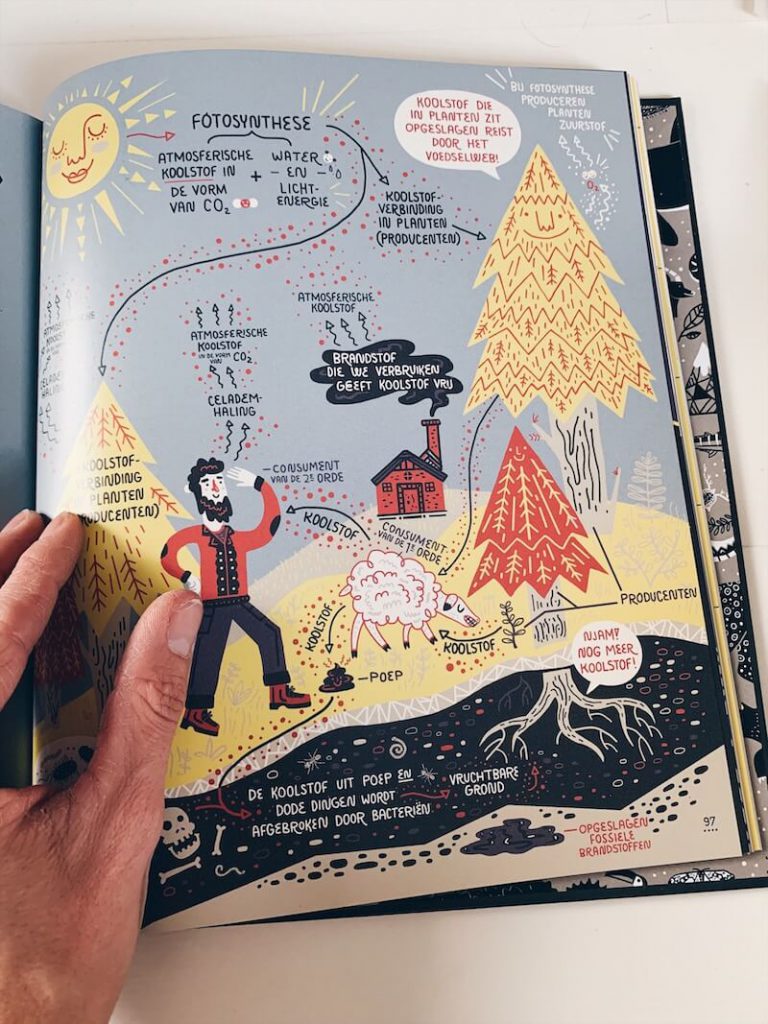 FOTOSYNTHESE
ATMOSFERISCHE
KOOLSTOF IN
DE VORM
VAN CO2
+
WATER
- EN -
LICHT-
ENERGIE
KOOLSTOF DIE
IN PLANTEN ZIT
OPGESLAGEN REIST
DOOR HET
VOEDSELWEB!
BIJ FOTOSYNTHESE
PRODUCEREN
PLANTEN
ZUURSTOF
O2
KOOLSTOF-
VERBINDING
IN PLANTEN
(PRODUCENTEN)
ATMOSFERISCHE
KOOLSTOF
ATMOSFERISCHE
KOOLSTOF
IN DE VORM
VAN CO2
BRANDSTOF
DIE WE VERBRUIKEN
GEEFT KOOLSTOF VRIJ
CELADEM-
HALING
KOOLSTOF-
VERBINDING
PLANTEN
CONSUMENT
VAN DE 2E ORDE
KOOLSTOF
CONSUMENT
VAN DE 1E ORDE
KOOLSTOF
KOOLSTOF
PRODUCENTEN
POEP
NJAM!
NOG MEER
KOOLSTOF!
DE KOOLSTOF UIT POEP EN
DODE DINGEN WORDT
AFGEBROKEN DOOR BACTERIËN
VRUCHTBARE
GROND
OPGESLAGEN
FOSSIELE
BRANDSTOFFEN
97